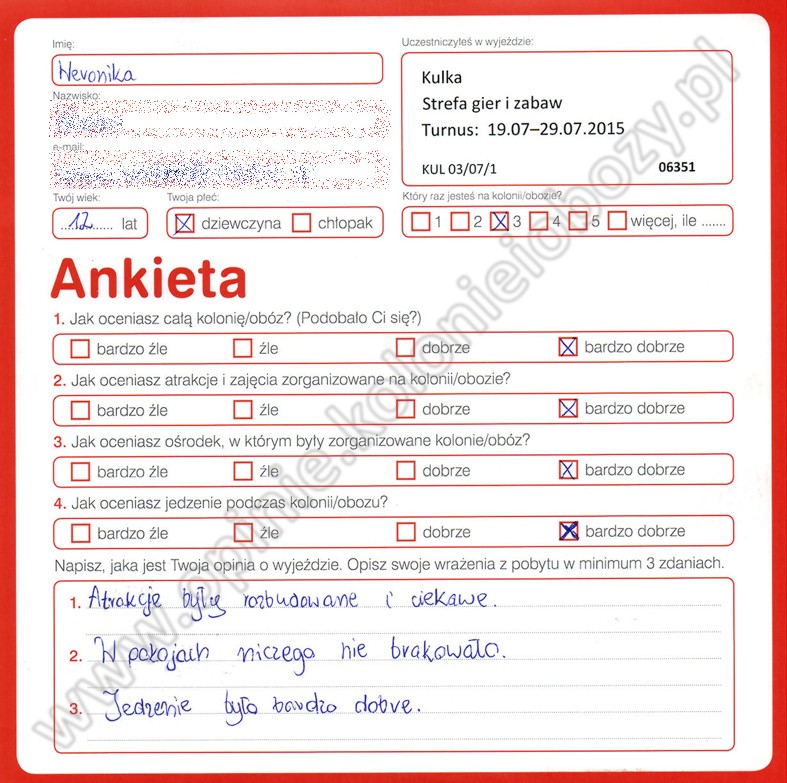 Imię:
Weronika
Nazwisko:
e-mail:
Twój wiek:
12 lat
Twoja płeć:
dziewczyna chłopak
Uczestniczyłeś w wyjeździe:
Kulka
Strefa gier i zabaw
Turnus: 19.07–29.07.2015
KUL 03/07/1 06351
Który raz jesteś na kolonii/obozie?
1 2 3 4 5 więcej, ile .......
Ankieta
1. Jak oceniasz całą kolonię/obóz? (Podobało Ci się?)
bardzo źle źle dobrze bardzo dobrze
2. Jak oceniasz atrakcje i zajęcia zorganizowane na kolonii/obozie?
bardzo źle źle dobrze bardzo dobrze
3. Jak oceniasz ośrodek, w którym były zorganizowane kolonie/obóz?
bardzo źle źle dobrze bardzo dobrze
4. Jak oceniasz jedzenie podczas kolonii/obozu?
bardzo źle źle dobrze bardzo dobrze
Napisz, jaka jest Twoja opinia o wyjeździe. Opisz swoje wrażenia z pobytu w minimum 3 zdaniach.
1. Atrakcje były rozbudowane i ciekawe.
2. W pokojach niczego nie brakowało.
3. Jedzenie było bardzo dobre.
www.opinie.kolonieiobozy.pl